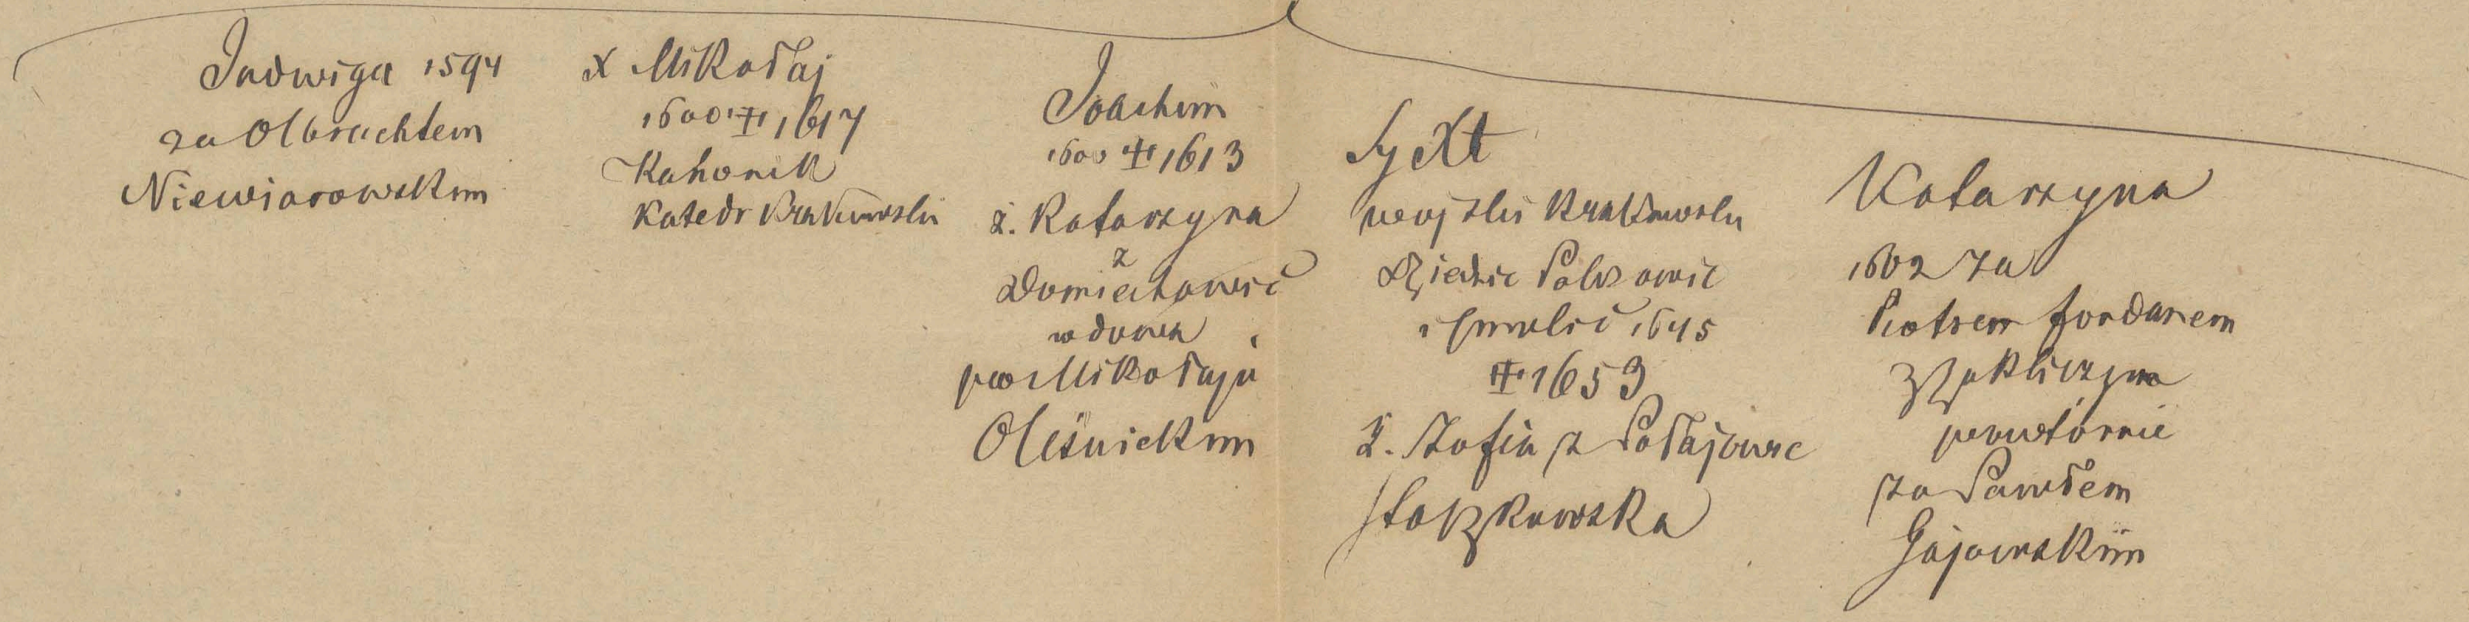 Jadwiga 1594
za Olbrachtem
Niewiarowskim
X Mikołaj
1600 ‡ 1617
Kanonik
Katedr Krakowski
Joachim
1600 ‡ 1613
ż. Katarzyna
z
wdowa
po Mikołaju
Oleśnickim
Syxt
wojski Krakowski
dziedzic
i 1645
‡ 1653
ż. Zofia z
Katarzyna
1602 za
Piotrem Jordanem
z Zakliczyna
powtórnie
za Pawłem
Gajowskim